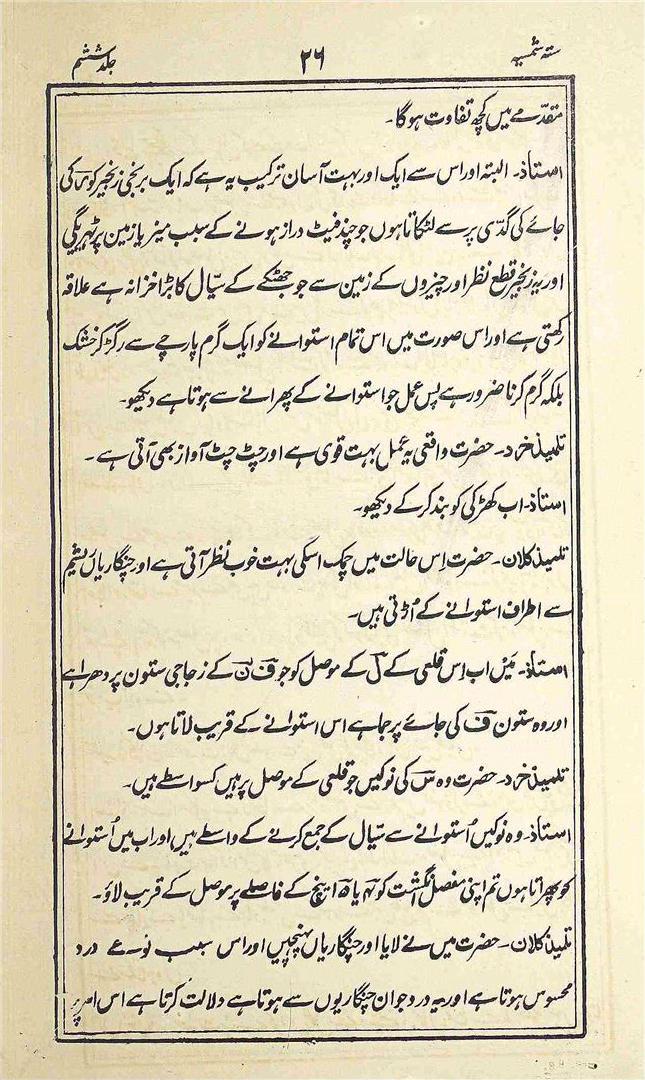 ستہ شمسیہ ۲۶ جلد ششم
مقدمے میں کچھ تفاوت ہوگا۔
استاذ۔ البتہ اور اس سے ایک اور بہت آسان ترکیب یہ ہے کہ ایک برنجی زنجیر کو ں کی
جائے کی گدّی پر سے لٹکاتا ہوں جو چند فیٹ دراز ہونے کے سبب میز یا زمین پر ٹہریگی
اور یہ زنجیر قطع نظر اور چیزوں کے زمین سے جو جھٹکے کے سیّال کا بڑا خزانہ ہے علاقہ
رکھتی ہے اور اس صورت میں اس تمام استوانے کو ایک گرم پارچے سے رگڑ کر خشک
بلکہ گرم کرنا ضرور ہے پس عمل جو استوانے کے پھرانے سے ہوتا ہے دیکھو۔
تلمیذ خرد۔ حضرت واقعی یہ عمل بہت قوی ہے اور چٹ چٹ آواز بھی آتی ہے۔
استاذ۔ اب کھڑکی کو بند کر کے دیکھو۔
تلمیذ کلان۔ حضرت اِس حالت میں چمک اسکی بہت خوب نظر آتی ہے اور چنگاریاں ریشم
سے اطراف استوانے کے اُڑتی ہیں۔
استاذ۔ مَیں اب اِس قلعی کے لؔ کے موصل کو جو فؔ نؔ کے زجاجی ستون پر دھرا ہے
اور وہ ستون فؔ کی جائے پر جما ہے اس استوانے کے قریب لاتا ہوں۔
تلمیذ خرد۔ حضرت وہ سؔ کی نوکیں جو قلعی کے موصل پر ہیں کسواسطے ہیں۔
استاذ۔ وہ نوکیں اُستوانے سے سیّال کے جمع کرنے کے واسطے ہیں اور اب میں اُستوانے
کو پھراتا ہوں تم اپنی مفصل انگشت کو ۴ یا ۵ اینچ کے فاصلے پر موصل کے قریب لاؤ۔
تلمیذ کلان۔ حضرت میں نے لایا اور چنگاریاں پہنچیں اور اس سبب نوعے درد
محسوس ہوتا ہے اور یہ درد جو ان چنگاریوں سے ہوتا ہے دلالت کرتا ہے اس امر پر